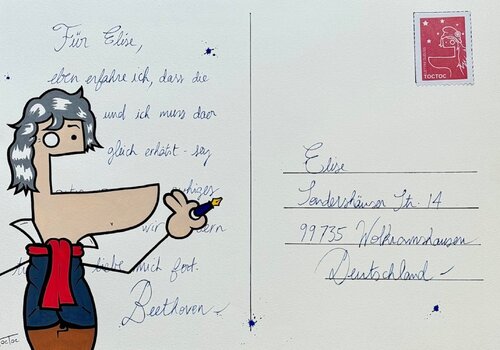 Für Elise,
eben erfahre ich, dass die
und ich muss daer
gleich erhältst - sey
ruhiges
wir dern
liebe mich fort.
Beethoven
TOCTOC
TocToc
Elise
Sondershäuser Str. 14
99735 Wolkramshausen
Deutschland